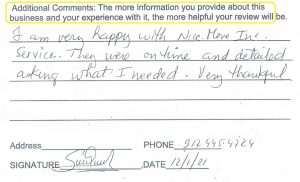 Additional Comments: The more information you provide about this
business and your experience with it, the more helpful your review will be.
I am very happy with Nice Move Inc.
Service. They were on time and detailed
asking what I needed. Very thankful
Address PHONE 917 445 4724
SIGNATURE DATE 12/1/21